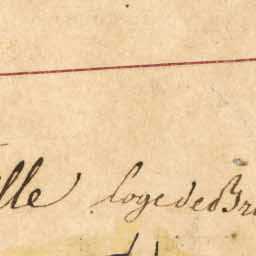 lle loge des Br